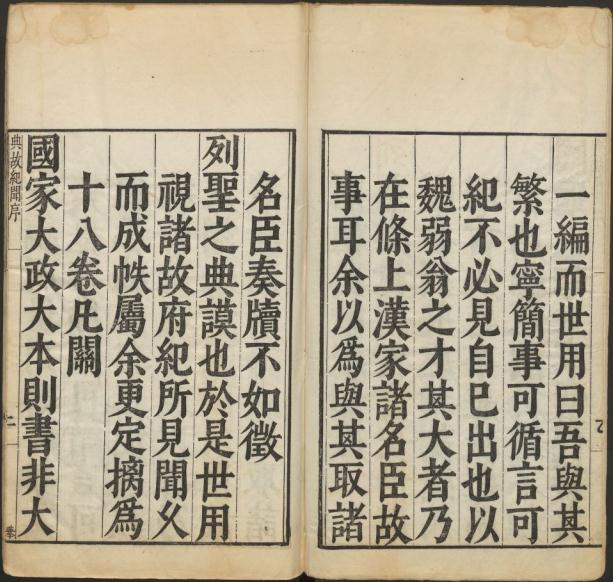 一編而世用曰吾與其
繁也寧簡事可循言可
紀不必見自已出也以
魏弱翁之才其大者乃
在條上漢家諸名臣故
事耳余以爲與其取諸
名臣奏牘不如徵
列聖之典謨也於是世用
視諸故府紀所見聞久
而成帙屬余更定摘爲
十八卷凡關
國家大政大本則書非大
典故紀聞序